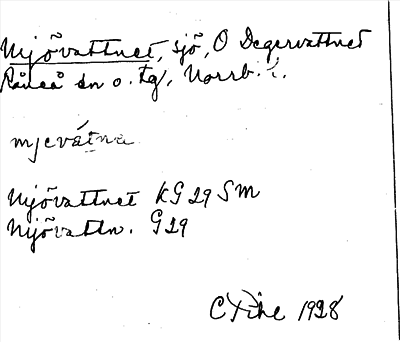 Mjövattnet, sjö, O Degervattnet
Råneå sn o. tg, Norrb. l.
mjevátna
Mjövattnet KG 29 SM
Mjövattn. G29
1928